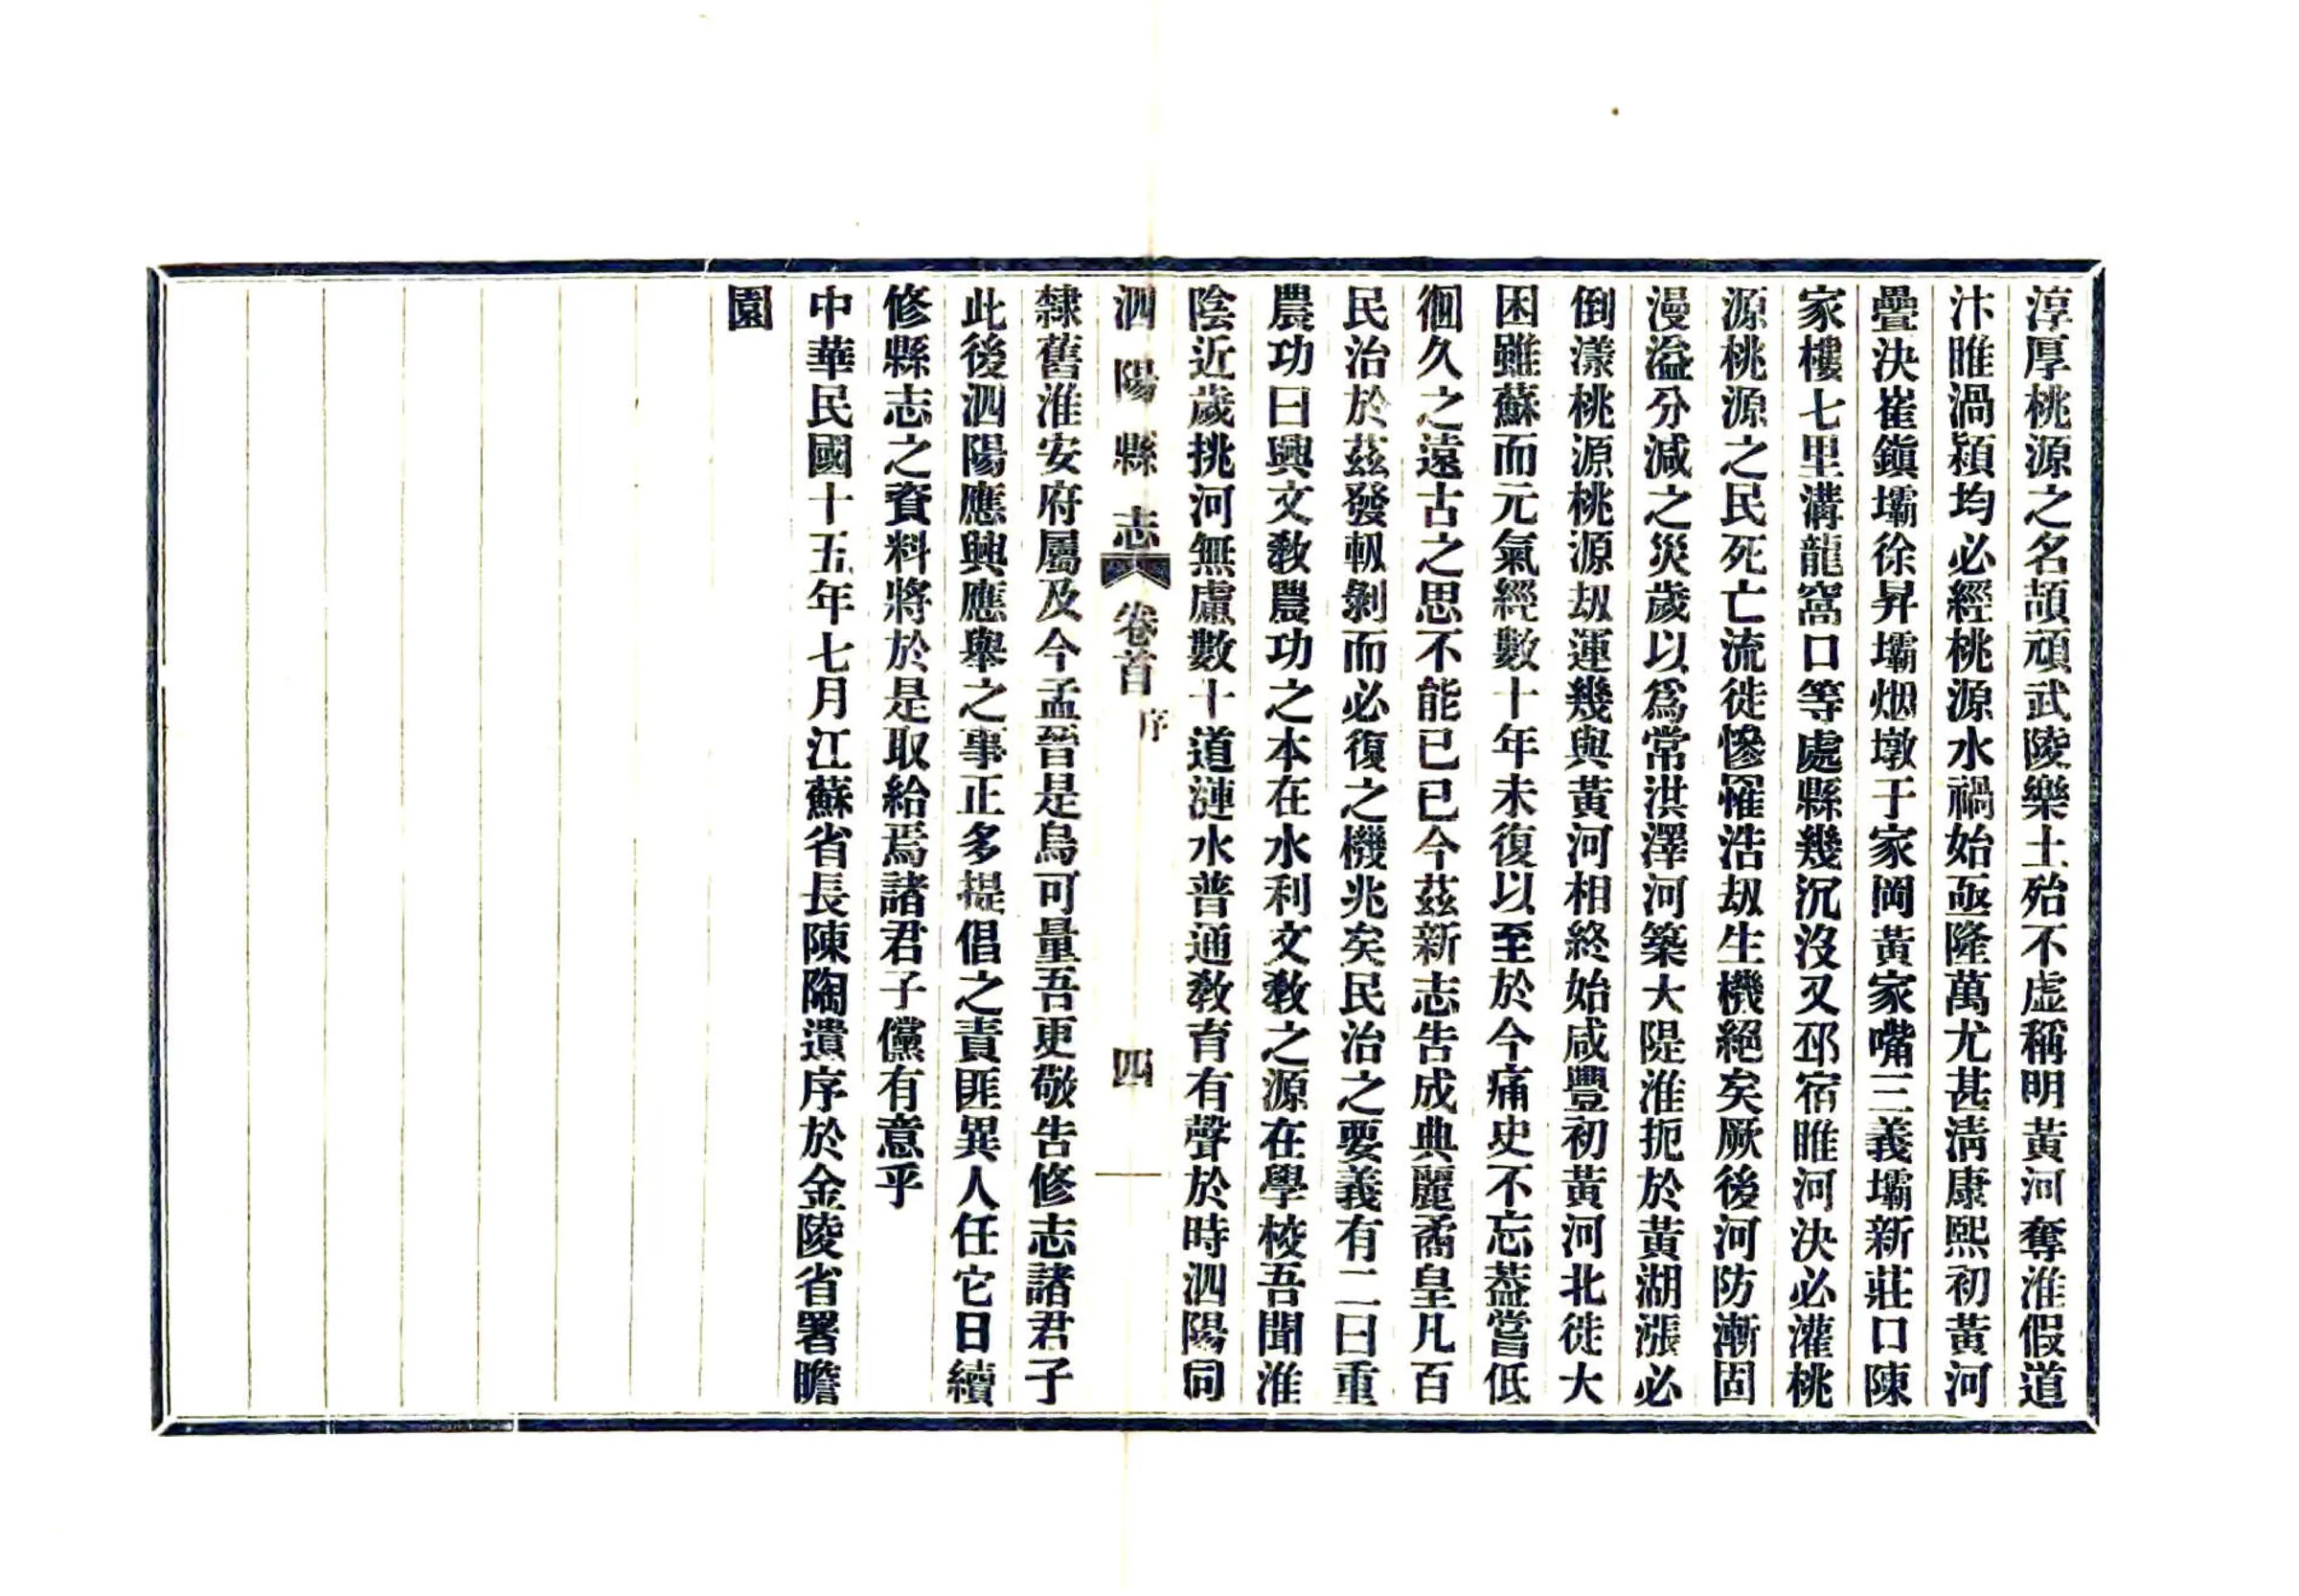 淳厚桃源之名頡頏武陵樂土殆不虛稱明黃河奪淮假道
汴睢渦潁均必經桃源水禍始亟隆萬尤甚清康熙初黃河
疊決崔鎮壩徐昇壩烟墩于家岡黃家嘴三義壩新莊口陳
家樓七里溝龍窩口等處縣幾沉沒又邳宿睢河決必灌桃
源桃源之民死亡流徙慘罹浩刼生機絕矣厥後河防漸固
漫溢分減之災歲以爲常洪澤河築大隄淮扼於黃湖漲必
倒漾桃源桃源刼運幾與黃河相終始咸豐初黃河北徙大
困雖蘇而元氣經數十年未復以至於今痛史不忘葢嘗低
徊久之遠古之思不能已已今茲新志告成典麗矞皇凡百
民治於茲發軔剝而必復之機兆矣民治之要義有二曰重
農功曰興文敎農功之本在水利文敎之源在學校吾聞淮
陰近歲挑河無慮數十道漣水普通敎育有聲於時泗陽同
泗陽縣志 卷首 序 四
隸舊淮安府屬及今孟晉是烏可量吾更敬告修志諸君子
此後泗陽應興應舉之事正多提倡之責匪異人任它日續
修縣志之資料將於是取給焉諸君子儻有意乎
中華民國十五年七月江蘇省長陳陶遺序於金陵省署瞻
園